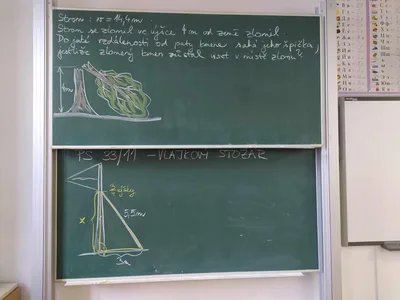 Strom: v = 14,4 m
Strom se zlomil ve výšce 4 m od země zlomil
Do jaké vzdálenosti od paty kmene sahá jeho špička,
jestliže zlomený kmen zůstal viset v místě zlomu?
4m
PS 33/11 - VLAJKOVÝ STOŽÁR
5,5m
x
3m